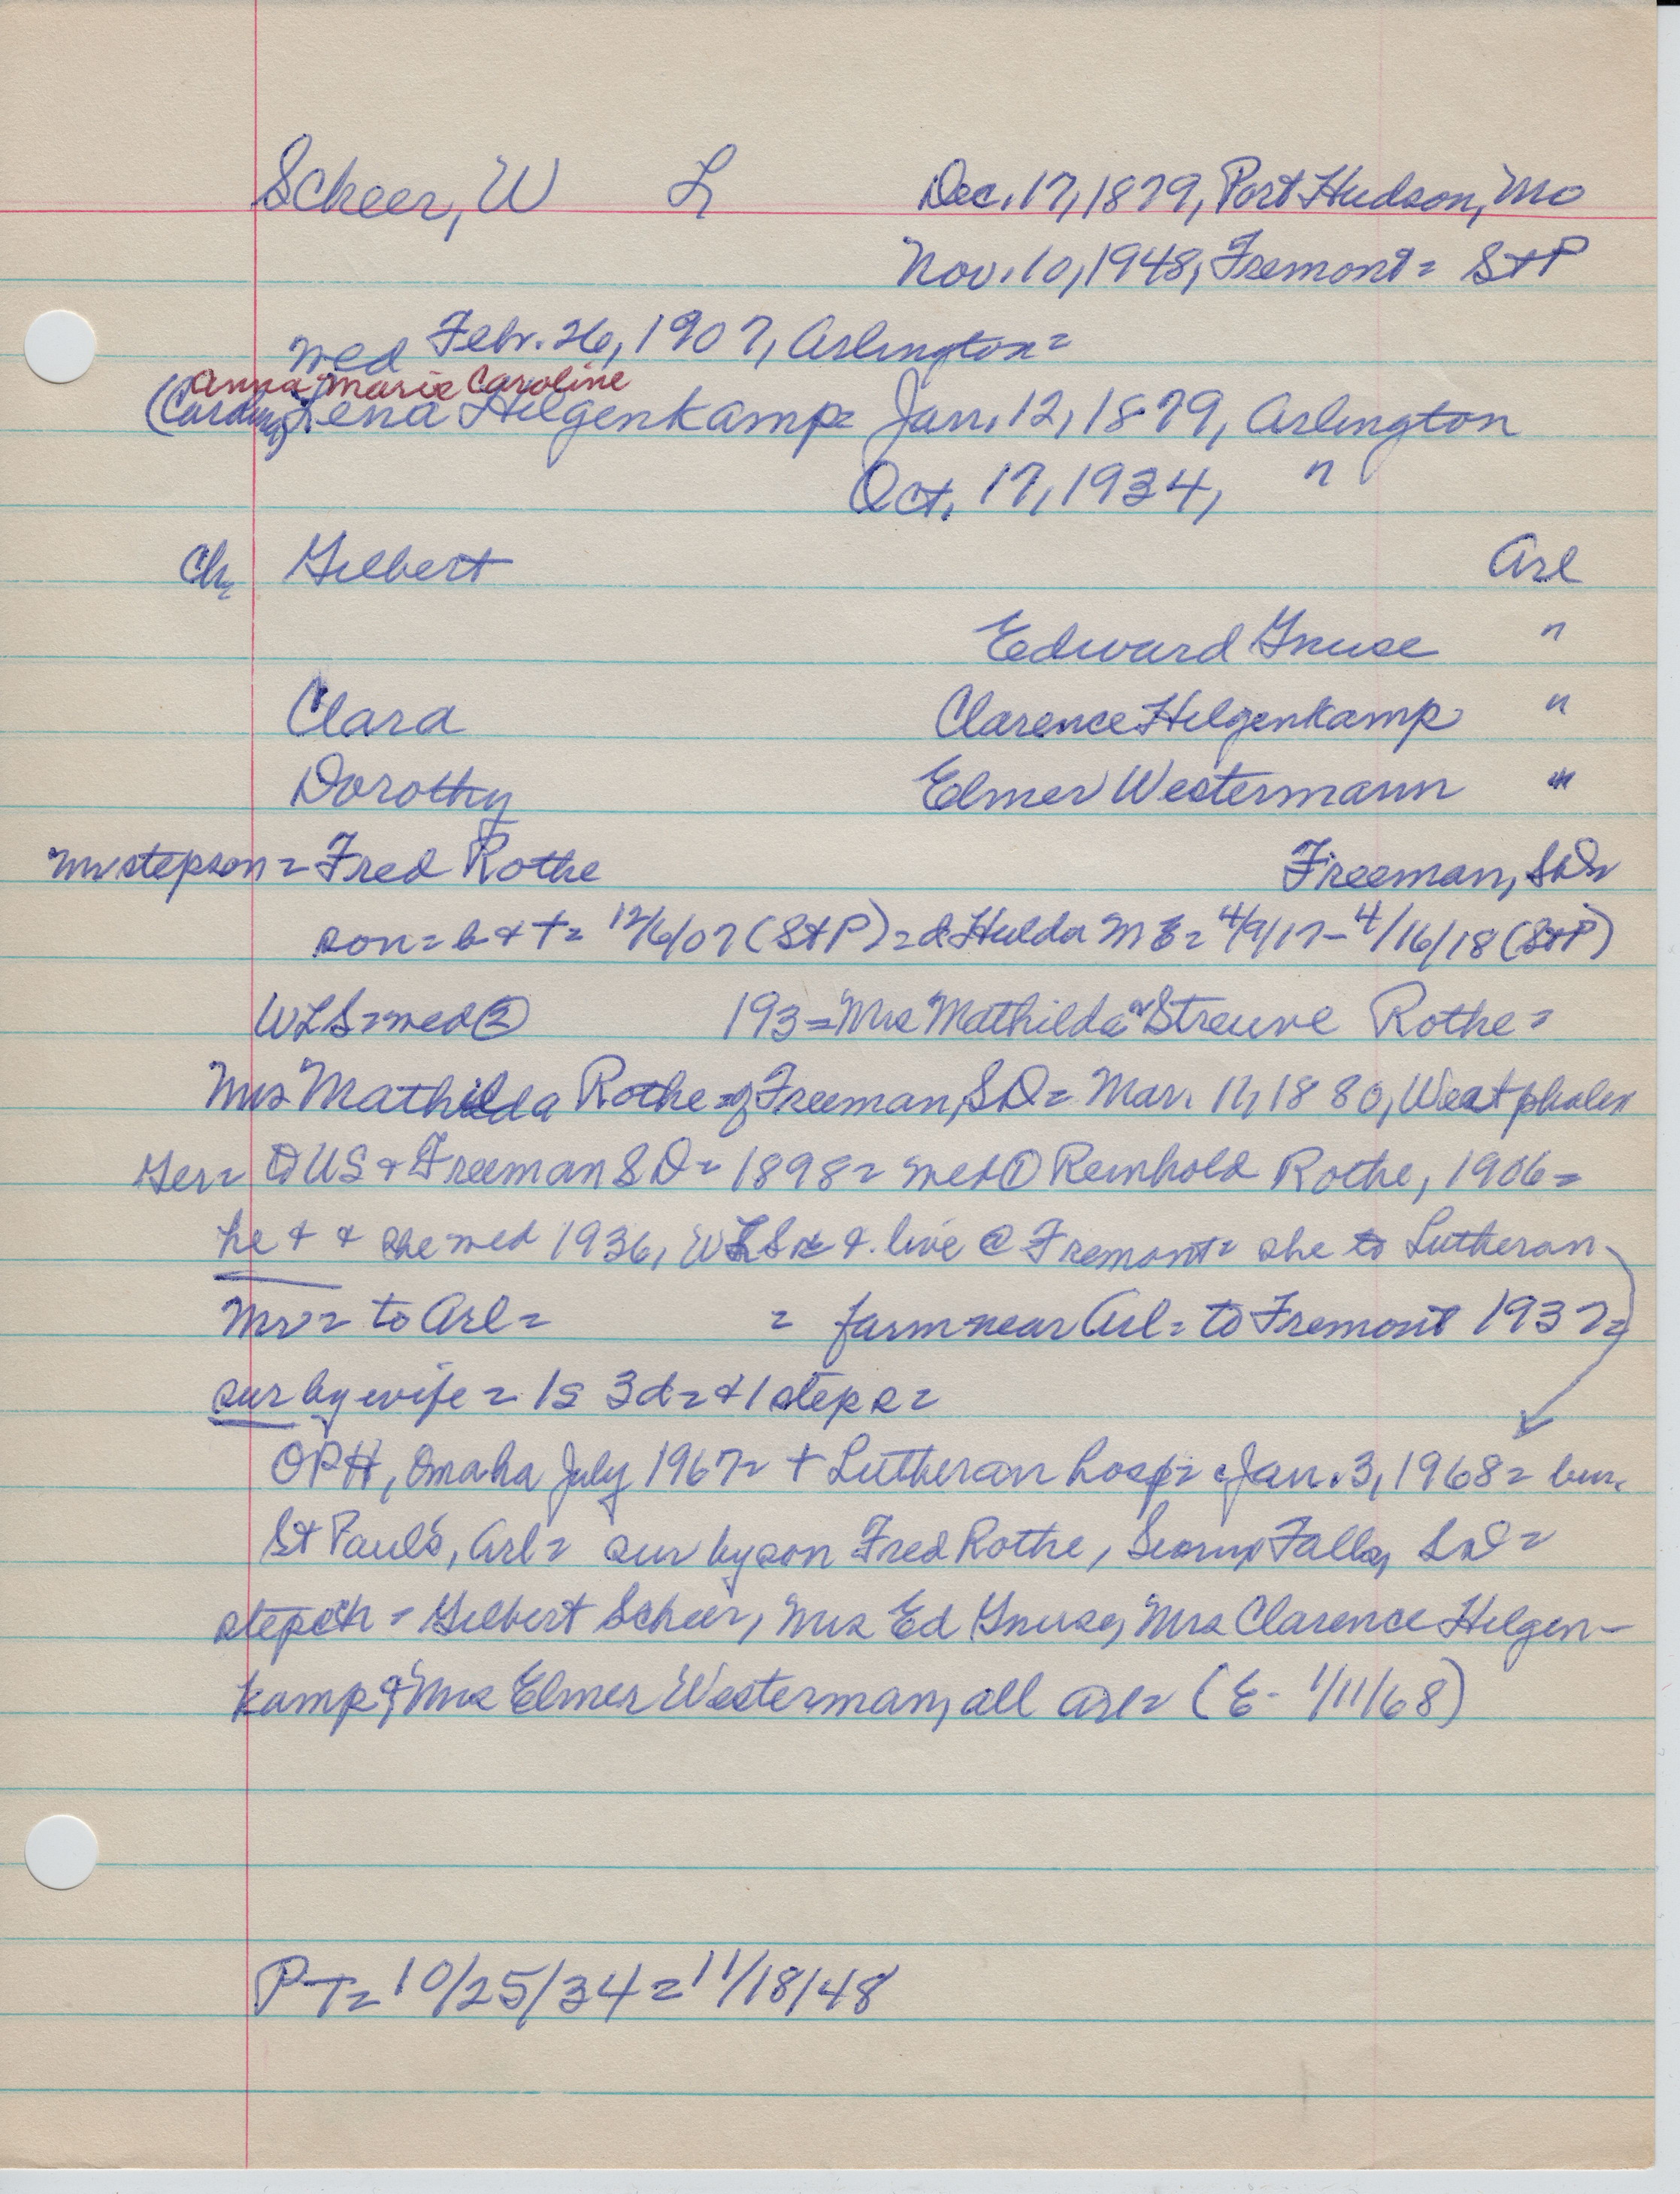 Scheer, W L Dec. 17, 1879, Port Hudson, Mo
Nov. 10, 1948, Fremont = St P
wed Febr. 26, 1907, Arlington =
Anna Marie Caroline
(Caroline) Lena Hilgenkamp = Jan. 12, 1879, Arlington
Oct. 17, 1934, "
Ch = Gilbert Arl
Edward Gnuse "
Clara Clarence Hilgenkamp "
Dorothy Elmer Westermann "
stepson = Fred Rothe Freeman, SD
son = b & + = 12/6/07 (St P) = d Hulda M E = 4/9/17 - 4/16/18 (St P)
WLS = wed ② 193 = Mrs Mathilda Streuve Rothe =
Mrs Mathilda Rothe = of Freeman, SD = Mar. 17, 1880, Westphalen
Ger = to US & Freeman SD = 1898 = wed ① Reinhold Rothe, 1906 =
he + & she wed 1936, WLS & live @ Fremont = she to Lutheran
Mr = to Arl = = farm near Arl = to Fremont 1937 =
sur by wife = 1s 3d = & 1 step s =
OPH, Omaha July 1967 = + Lutheran hosp = Jan. 3, 1968 = bur.
St Paul's, Arl = sur by son Fred Rothe, Sioux Falls, SD =
step ch = Gilbert Scheer, Mrs Ed Gnuse, Mrs Clarence Hilgen-
kamp & Mrs Elmer Westerman, all Arl = (E - 1/11/68)
PT = 10/25/34 = 11/18/48